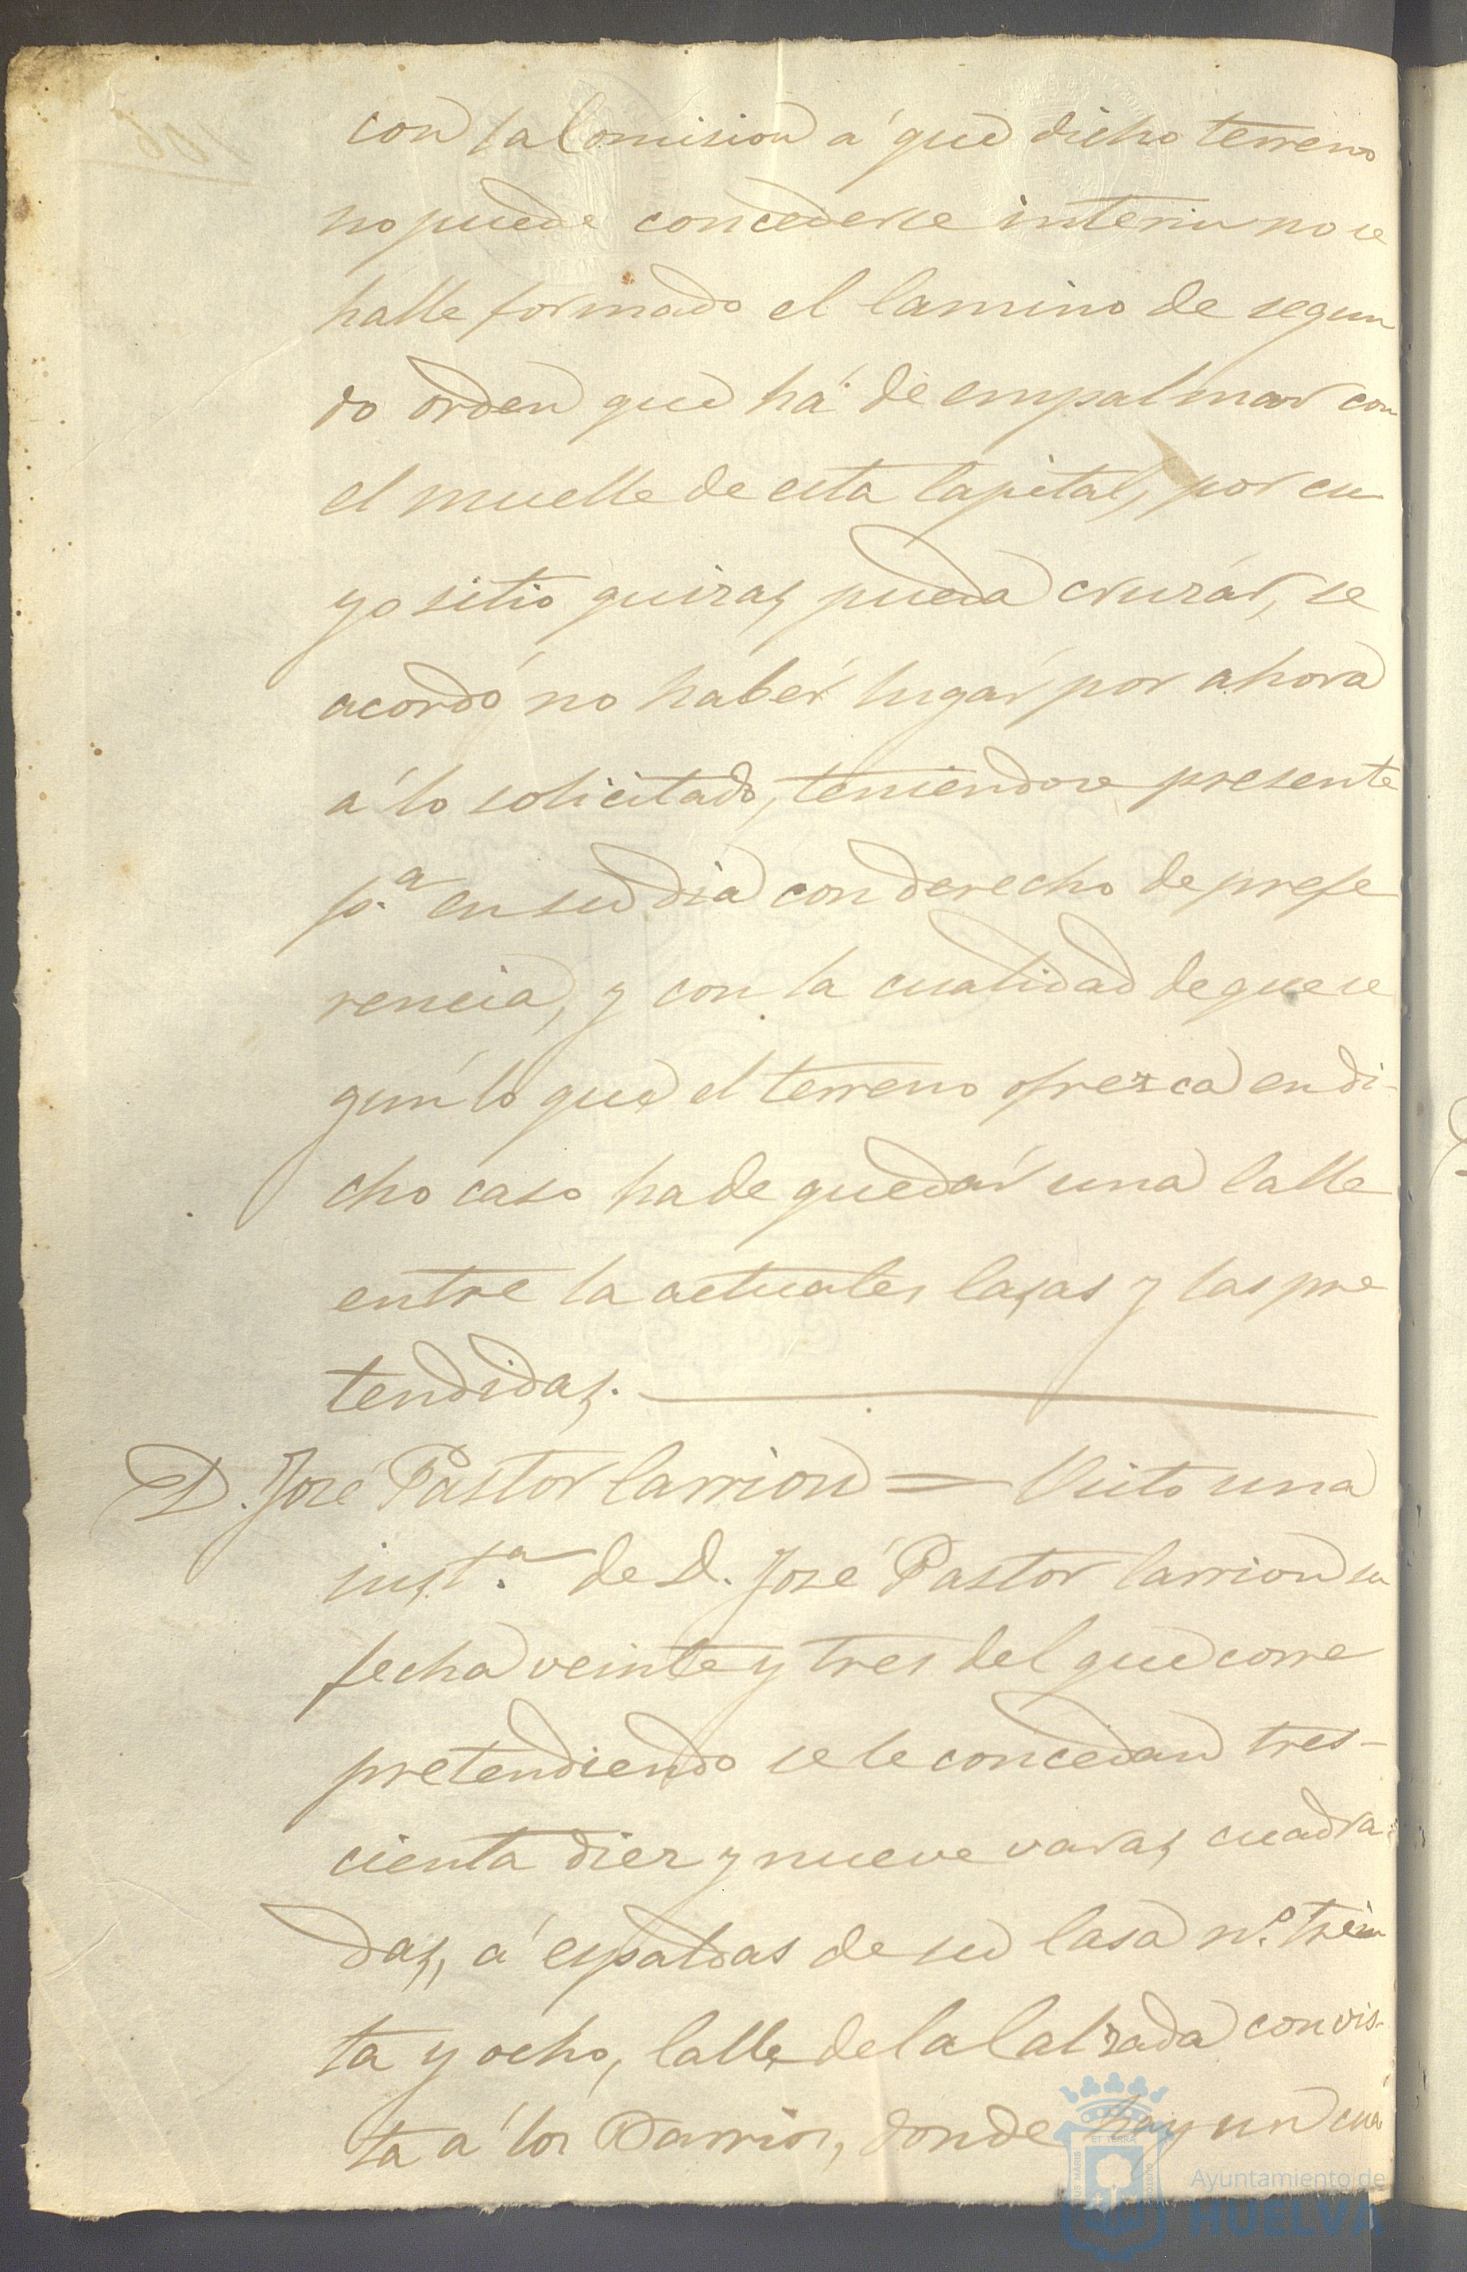 con la Comision á que dicho terreno
no puede concederse interin no se
halle formado el Camino de segun
do orden que há de empalmar con
el muelle de esta Capital, por cu
yo sitio quizas pueda cruzar, se
acordó no haber lugar por ahora
á lo solicitado, teniendose presente
p.ª en su dia con derecho de prefe
rencia, y con la cualidad de que se
gun lo que el terreno ofrezca en di-
cho caso ha de quedar una Calle
entre la actuales Casas y las pre
tendidas.
D. José Pastor Carrion = Visto una
inst.ª de D. José Pastor Carrion su
fecha veinte y tres del que corre
pretendiendo se le concedan tres-
cienta diez y nueve varas cuadra
das, á espaldas de su Casa n.º trein
ta y ocho, Calle de la Calzada con vis-
ta á los Barrios, donde hay un cua
Ayuntamiento de
HUELVA